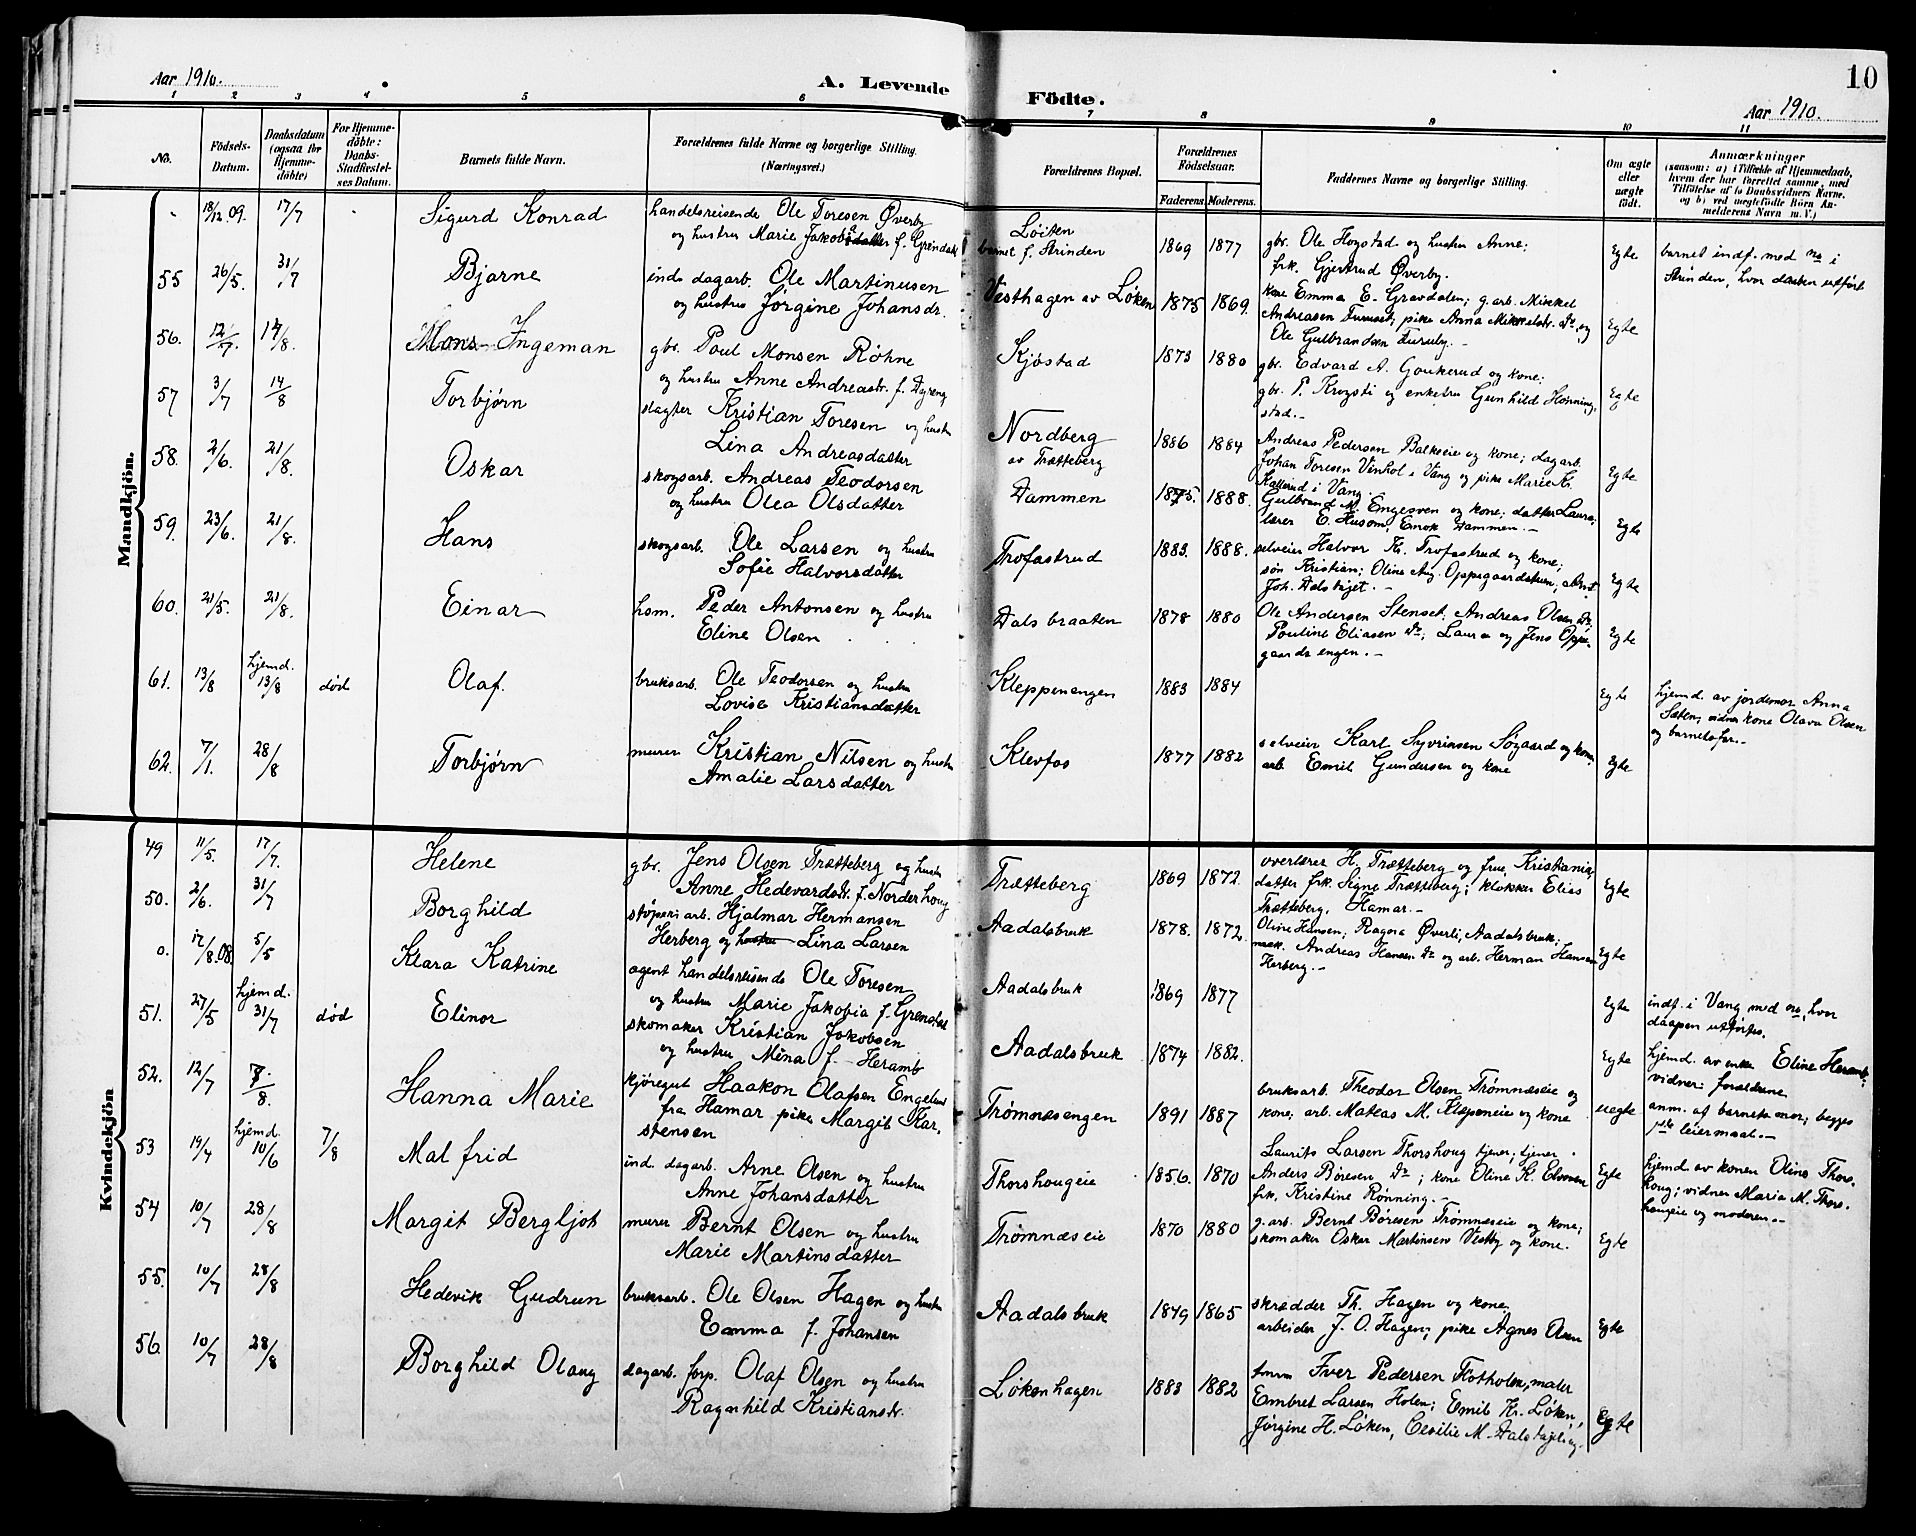 Aar 1910.
A. Levende
Födte.
Aar 1910.
10
1 2 3 4 5 6 7 8 9 10 11
No.
Födsels-
Datum.
Daabsdatum
(ogsaa for
Hjemme-
döbte)
For Hjemme-
döbte:
Daabs-
Stadfæstel-
ses Datum.
Barnets fulde Navn.
Forældrenes fulde Navne og borgerlige Stilling.
(Næringsvei.)
Forældrenes Bopæl.
Forældrenes
Födselsaar.
Faderens. Moderens.
Faddernes Navne og borgerlige Stilling.
Om ægte
eller
uægte
födt.
Anmærkninger
(saasom: a) i Tilfælde af Hjemmedaab,
hvem der har forrettet samme, med
Tilföielse af to Daabsvidners Navne.
og b) ved uegtefödte Börn An-
melderens Navn m. V.)
Mandkjön.
18/12 09. 17/7 Sigurd Konrad
handelsreisende Ole Toresen Øverby
og hustru Marie Jakobsdatter f. Grendal
Løiten
barnet f. Strinden
1869 1877
gbr. Ole Hogstad og hustru Anne;
frk. Gjertrud Øverby.
Egte
barnet indf. med no i
Strinden, hvor daaben utført
55 26/5. 31/7 Bjarne
inds. dagarb. Ole Martinusen
og hustru Jørgine Johansdr.
Vesthagen av Løken
1875 1869.
kone Emma E. Gravdalen; g.arb. Mikkel
Andreasen Furuset; pike Anna Mikkelsdr. do. og
Ole Gulbrandsen Furuby.
Egte
56. 12/7. 14/8. Mons Ingeman
gbr. Poul Monsen Røhne
og hustru Anne Andreasdr. f. Dyreng
Kjøstad
1873 1880
gbr. Edvard A. Gaukerud og kone;
gbr. P. Krogsti og enkefru Gunhild Hønning-
stad.-
Egte
57 3/7 14/8 Torbjørn
slagter Kristian Toresen og hustru
Lina Andreasdatter
Nordberg
av Trætteberg
1886 1884
Andreas Pedersen Balkeeie og kone; dagarb.
Johan Toresen Vinhol i Vang og pike Marie Kr.
Kallerud i Vang.
Egte
58. 2/6. 21/8. Oskar
skogsarb. Andreas Teodorsen
og hustru Olea Olsdatter
Dammen
1875. 1888.
Gulbrand M. Engesven og kone; datter Laura;
lærer E. Husom; Enok Dammen.-
Egte
59. 23/6. 21/8. Hans
skogsarb. Ole Larsen og hustru
Sofie Halvorsdatter
Trofastrud
1883. 1888.
selveier Halvor K. Trofastrud og kone;
søn Kristian; Oline Aug. Oppegaardstuen; Arnt
Joh. Dalshaget.-
Egte
60. 21/5. 21/8. Einar
hsm. Peder Antonsen og hustru
Eline Olsen
Dalsbraaten
1878 1880
Ole Andersen Stenset; Andreas Olsen do;
Pouline Eliasen do; Laura og Jens Oppe-
gaardsengen.-
Egte
61. 13/8 hjemd. 13/8 død Olaf.
bruksarb. Ole Teodorsen og hustru
Lovise Kristiansdatter
Kleppenengen
1883 1884
Egte
hjemd. av jordemor Anna
Sæten, vidner kone Olava Olsen
og barnets far.-
62. 7/1. 28/8 Torbjørn
murer Kristian Nilsen og hustru
Amalie Larsdatter
Klevfos
1877 1882
selveier Karl Syvrinsen Søgaard og kone
arb. Emil Gundersen og kone
Egte
Kvindekjön
49 11/5. 17/7. Helene
gbr. Jens Olsen Trætteberg og hustru
Anne Hedevardsdr. f. Norderhoug
Trætteberg
1869 1872.
overlærer H. Trætteberg og frue, Kristiania
datter frk. Signe Trætteberg; klokker Elias
Trætteberg, Hamar.-
Egte
50. 2/6. 31/7 Borghild
støperiarb. Hjalmar Hermansen
Herberg og hustru Lina Larsen
Aadalsbruk
1878. 1872.
Oline Hansen; Ragna Øverli, Aadalsbruk;
mask. Andreas Hansen do og arb. Herman Hansen
Herberg.-
Egte
o. 12/8.08. 5/5 Klara Katrine
agent handelsreisende Ole Toresen
og hustru Marie Jakobia f. Grendal
Aadalsbruk
1869 1877
Egte
indf. i Vang med no, hvor
daapen utførtes.
51. 27/5 hjemd. 31/7 død Elinor
skomaker Kristian Jakobsen
og hustru Mina f. Heramb
Aadalsbruk
1874 1882.
Egte
hjemd. av enke Eline Heramb;
vidner: forældrene
52. 12/7 7/8. Hanna Marie
kjøregut Haakon Olafsen Engelund
fra Hamar pike Margit Kar-
stensen
Trømnæsengen
1891 1887
bruksarb. Theodor Olsen Trømnæseie og
kone; arb. Mateas M. Klæpeneie og kone
uegte
anm. af barnets mor; begges
1ste leiermaal.-
53 19/4 hjemd. 10/6 7/8 Malfrid
ind. dagarb. Arne Olsen og hustru
Anne Johansdatter
Thorshougeie
1856. 1870
Laurits Larsen Thorshoug tjener; tjener
Anders Børesen do; kone Oline K. Elvoven
frk. Kristine Rønning.-
Egte
hjemd. av konen Oline Thors-
houg; vidner Maria M. Thors-
hougeie og moderen.-
54 10/7 28/8 Margit Bergljot
murer Bernt Olsen og hustru
Marie Martinsdatter
Trømnæseie
1870 1880
g.arb. Bernt Børesen Trømnæseie og kone;
skomaker Oskar Martinsen Vestby og kone.
Egte
55. 10/7 28/8 Hedevik Gudrun
bruksarb. Ole Olsen Hagen og hustru
Emma f. Johansen
Aadalsbruk
1849 1865
skrædder Th. Hagen og kone,
arbeider J. O. Hagen; pike Agnes Olsen
Egte
56. 10/7 28/8 Borghild Olaug
dagarb. forp. Olaf Olsen og hustru
Ragnhild Kristiansdr.
Løkenhagen
1883 1882
Iver Pedersen Flotholen, maler
Embret Larsen Holen; Emil Kr. Løken,
Jørgine H. Løken, Cesilie M. Dalshagen
Egte